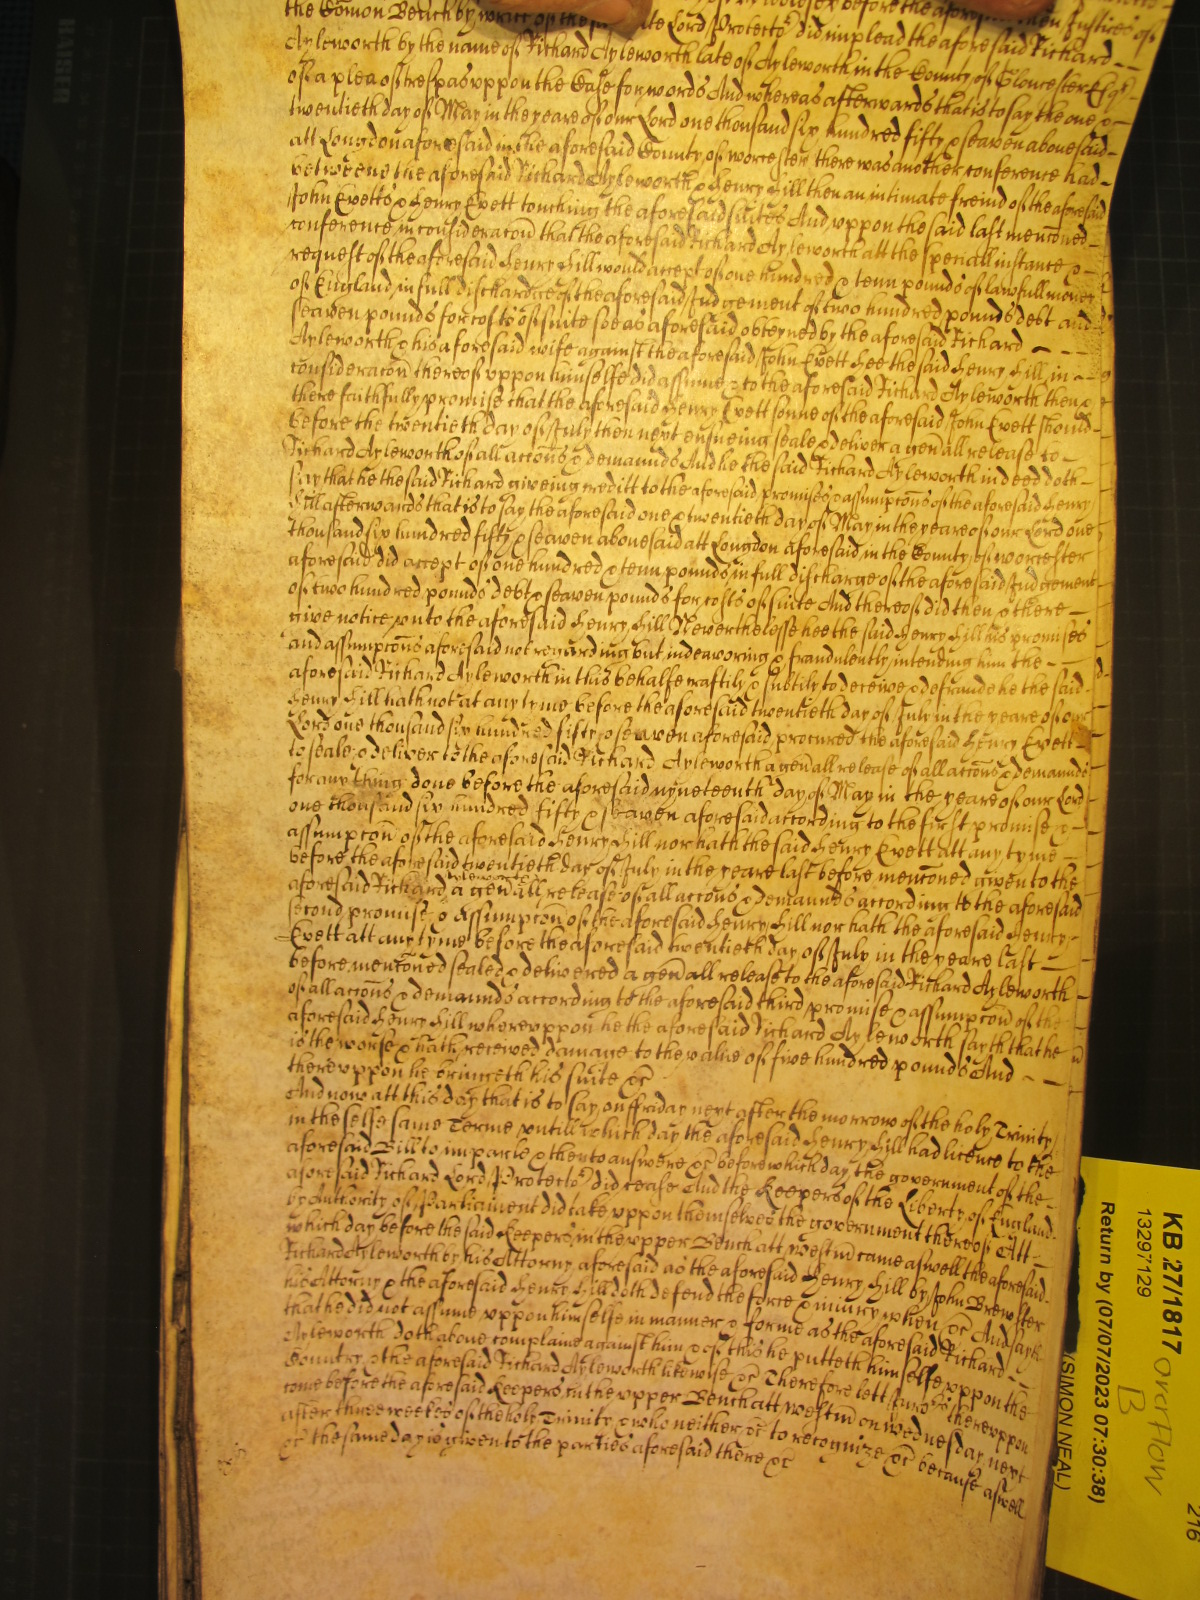 the Com̃on Bench by writt of the said late Lord Protector did implead the aforesaid Richard
Ayleworth by the name of Richard Ayleworth late of Ayleworth in the County of Gloucester Esqr
of a plea of trespas vppon the Case for words And whereas afterwards that is to say the one &
twentieth day of May in the yeare of our Lord one thousand six hundred fifty & seaven abovesaid
att Longdon aforesaid in the aforesaid County of worcester there was another conference had
betweene the aforesaid Richard Ayleworth & Henry Hill then an intimate freind of the aforesaid
John Evetts & Henry Evett touching the aforesaid suites And vppon the said last menc̃oned
conference in considerac̃on that the aforesaid Richard Ayleworth att the speciall instance &
request of the aforesaid Henry Hill would accept of one hundred & tenn pounds of lawfull money
of England in full discharge of the aforesaid Judgement of two hundred pounds debt and
seaven pounds for costs of suite soe as aforesaid obteyned by the aforesaid Richard
Ayleworth & his aforesaid wife against the aforesaid John Evett hee the said Henry Hill in
considerac̃on thereof vppon himselfe did assume & to the aforesaid Richard Ayleworth then &
there faithfully promise that the aforesaid Henry Evett sonne of the aforesaid John Evett should
before the twentieth day of July then next ensueing seale & deliver a gen̄all release to
Richard Ayleworth of all acc̃ons & demaunds And he the said Richard Ayleworth in deed doth
say that he the said Richard giveing creditt to the aforesaid promises & assumpc̃ons of the aforesaid Henry
Hill afterwards that is to say the aforesaid one & twentieth day of May in the yeare of our Lord one
thousand six hundred fifty & seaven abovesaid att Longdon aforesaid in the County of worcester
aforesaid did accept of one hundred & tenn pounds in full discharge of the aforesaid Judgement
of two hundred pounds debt & seaven pounds for costs of suite And thereof did then & there
give notice vnto the aforesaid Henry Hill Neverthelesse hee the said Henry Hill his promises
and assumpc̃ons aforesaid not regarding but indeavoring & fraudulently intending him the
aforesaid Richard Ayleworth in this behalfe craftily & subtily to deceive & defraude he the said
Henry Hill hath not at any tyme before the aforesaid twentieth day of July in the yeare of our
Lord one thousand six hundred fifty & seaven aforesaid procured the aforesaid Henry Evett
to seale & deliver to the aforesaid Richard Ayleworth a gen̄all release of all acc̃ons & demaunds
for any thing done before the aforesaid nyneteenth day of May in the yeare of our Lord
one thousand six hundred fifty & seaven aforesaid according to the first promise &
assumpc̃on of the aforesaid Henry Hill nor hath the said Henry Evett att any tyme
before the aforesaid twentieth day of July in the yeare last before menc̃oned given to the
aforesaid Richard Ayleworth a gen̄all release of all acc̃ons & demaunds according to the aforesaid
second promise & Assumpc̃on of the aforesaid Henry Hill nor hath the aforesaid Henry
Evett att any tyme before the aforesaid twentieth day of July in the yeare last
before menc̃oned sealed & delivered a gen̄all release to the aforesaid Richard Ayleworth
of all acc̃ons & demaunds according to the aforesaid third promise & assumpc̃on of the
aforesaid Henry Hill wherevppon he the aforesaid Richard Ayleworth sayth that he
is the worse & hath received damage to the value of five hundred pounds And
therevppon he bringeth his suite &c
And now att this day that is to say on ffriday next after the morrow of the holy Trinity
in the selfe same Terme vntill which day the aforesaid Henry Hill had licence to the
aforesaid Bill to imparle & then to answere &c before which day the government of the
aforesaid Richard Lord Protector did cease And the Keepers of the Liberty of England
by Authority of Parliament did take vppon themselves the government thereof Att
which day before the said Keepers in the vpper Bench att westm̃ came aswell the aforesaid
Richard Ayleworth by his Attorny aforesaid as the aforesaid Henry Hill by John Brewster
his Attorny & the aforesaid Henry Hill doth defend the force & iniury when &c And sayth
that he did not assume vppon himselfe in manner & forme as the aforesaid Richard
Ayleworth doth above complaine against him & of this he putteth himselfe vppon the
Country & the aforesaid Richard Ayleworth likewise &c Therefore lett Jurors therevppon
come before the aforesaid Keepers in the vpper Bench att westm̃ on wednesday next
after three weekes of the holy Trinity & who neither &c to recognize &c because aswell
&c the same day is given to the parties aforesaid there &c
KB 27/1817
13297129
Return by (07/07/2023 07:30:38)
(SIMON NEAL)
Overflow
B
216